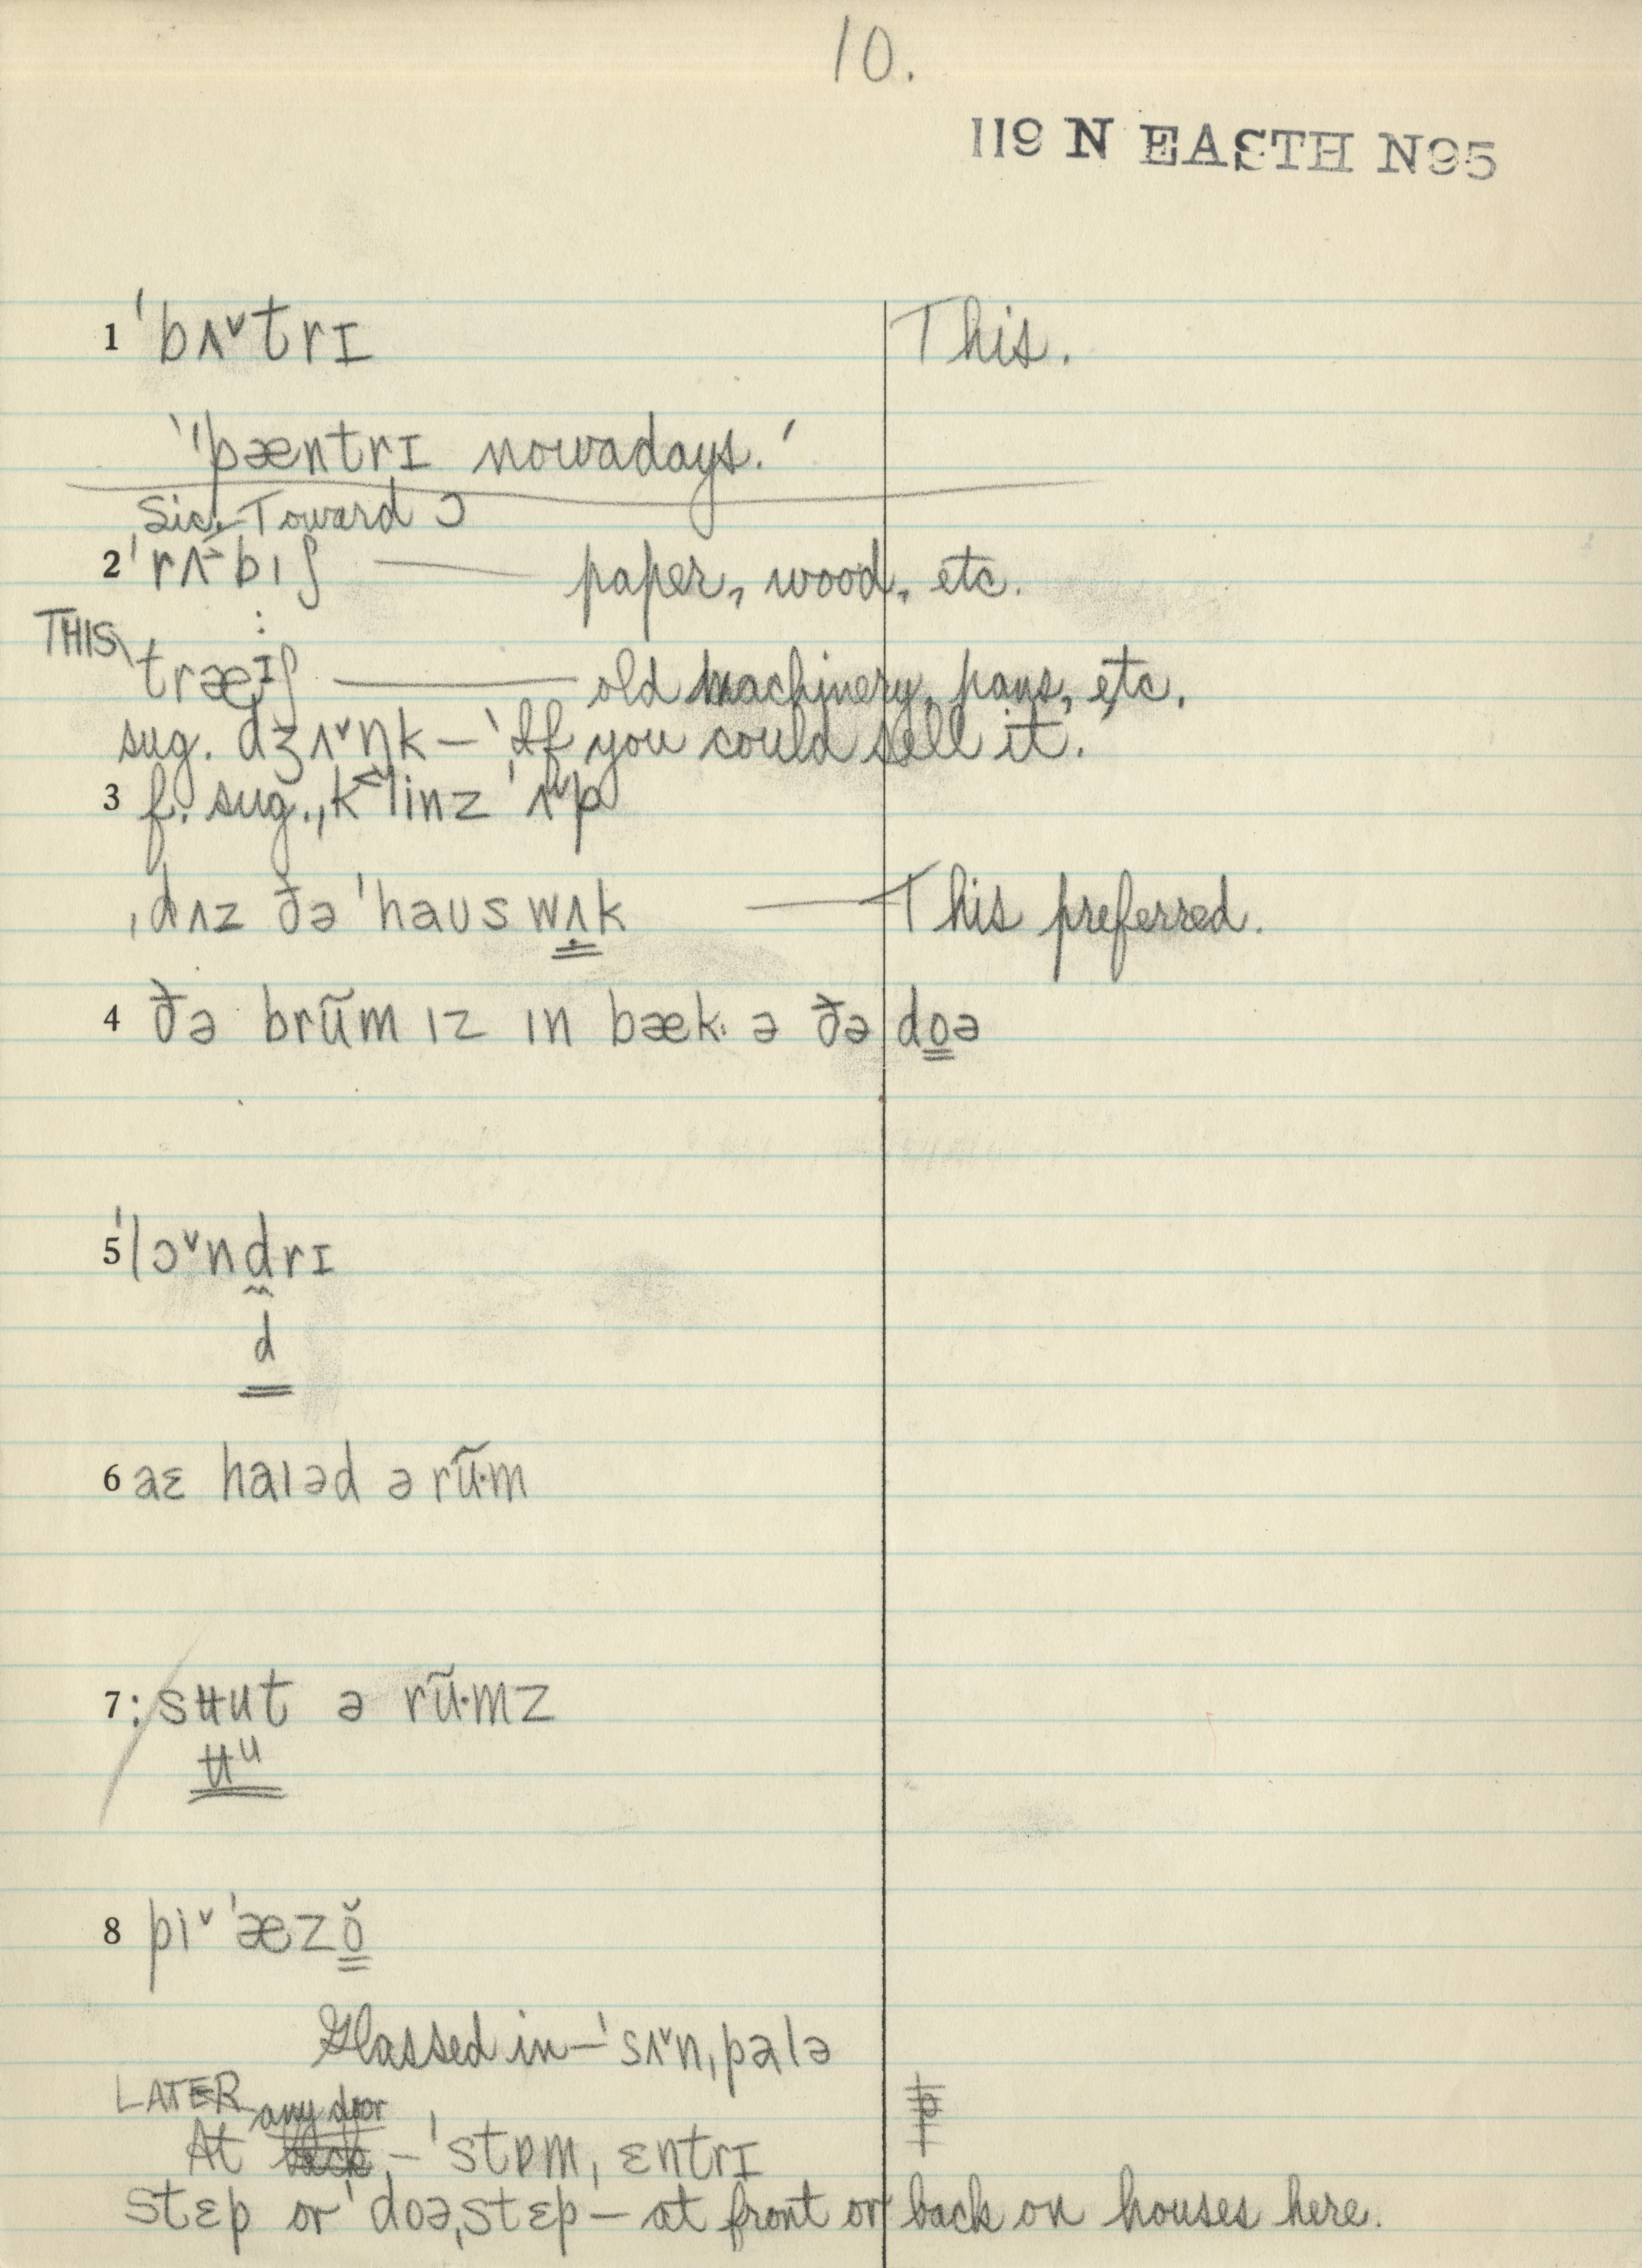 10.
119 N EASTH N95
1 ˈbʌ˅trɪ This.
'ˈpæntrɪ nowadays.'
Sic. Toward ɔ
2 ˈrʌ˃bıʃ — paper, wood, etc.
THIS træɪʃ — old machinery, pans, etc.
sug. dʒʌ˅ŋk – 'If you could sell it.'
3 f. sug., k˂linz ˈʌ˅p
ˌdʌz ðə ˈhaus wʌ̣k — This preferred.
4 ðə brũm ız ın bæk· ə ðə doə
5 ˈlɔ˅ndrɪ
d
6 aɛ haıəd ə rũ·m
7 : sʉut ə rũ·mz
ʉᵘ
8 pi˅ˈæzŏ
Glassed in – ˈsʌ˅nˌpalə
LATER any door
At – ˈstɒmˌɛntrɪ
stɛp or ˈdoəˌstɛp – at front or back on houses here.